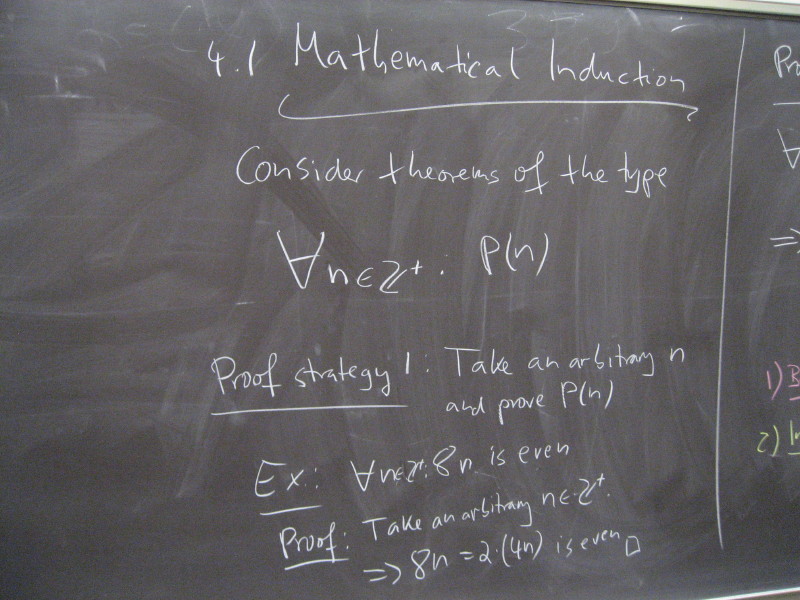 4.1 Mathematical Induction
Consider theorems of the type
∀n∈ℤ⁺: P(n)
Proof strategy 1: Take an arbitrary n
and prove P(n)
Ex.: ∀n∈ℤ⁺: 8n is even
Proof: Take an arbitrary n∈ℤ⁺.
⇒ 8n = 2·(4n) is even □
Pro
∀
⇒
1) B
2) In